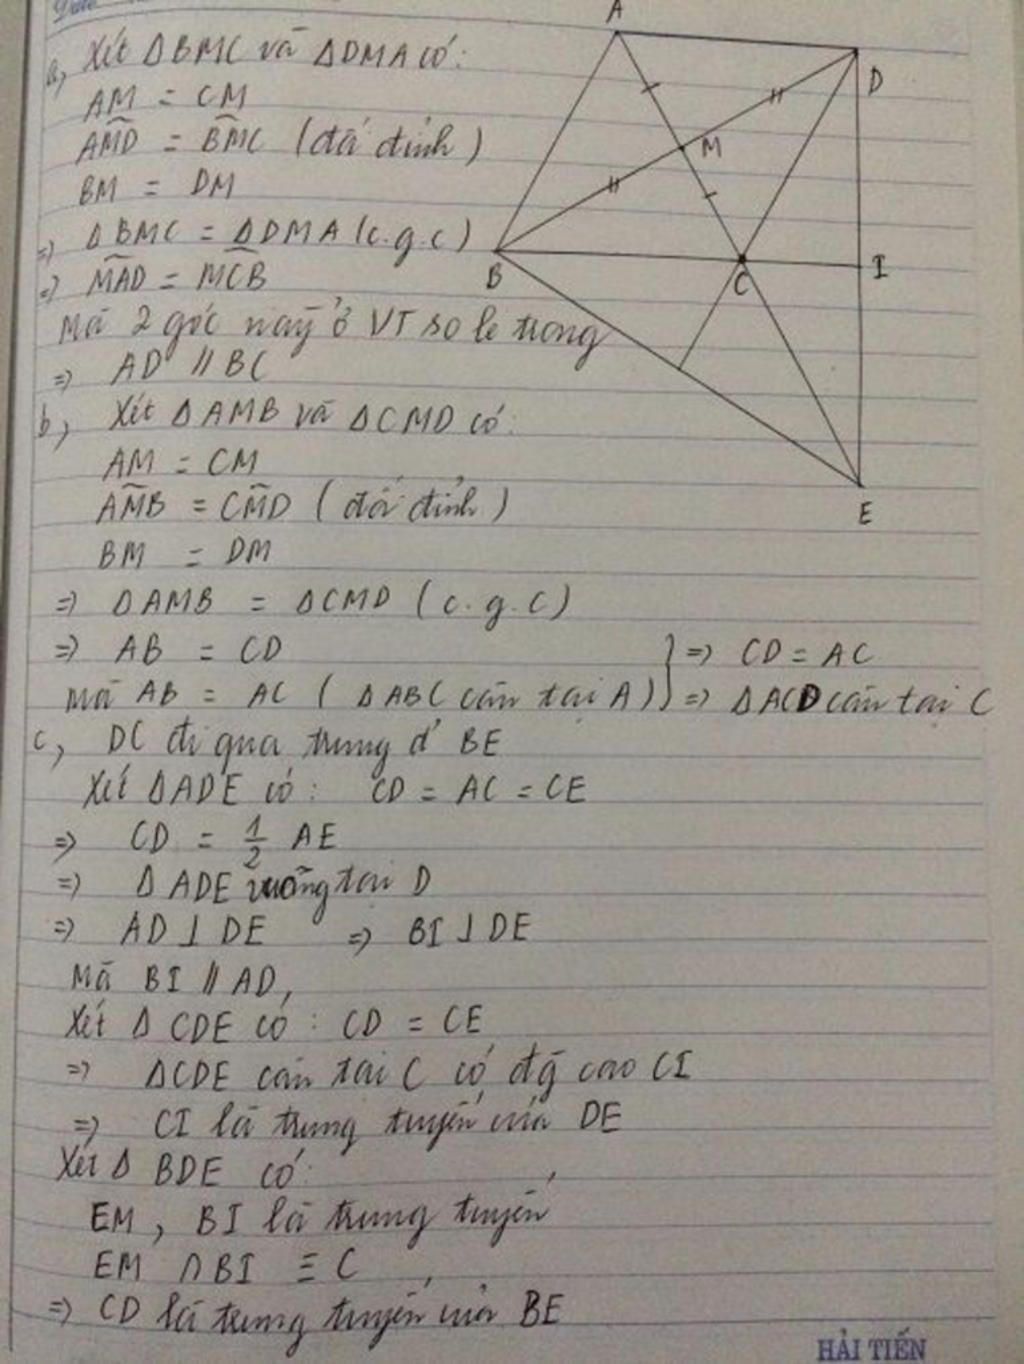 A
a, Xét ΔBMC và ΔDMA có:
AM = CM
AMD = BMC (đối đỉnh)
BM = DM
=> ΔBMC = ΔDMA (c.g.c)
=> MAD = MCB
Mà 2 góc này ở VT so le trong
=> AD // BC
D
M
B
C
I
E
b, Xét ΔAMB và ΔCMD có:
AM = CM
AMB = CMD (đối đỉnh)
BM = DM
=> ΔAMB = ΔCMD (c.g.c)
=> AB = CD } => CD = AC
Mà AB = AC (ΔABC cân tại A) } => ΔACD cân tại C
c, DC đi qua trung đ' BE
Xét ΔADE có: CD = AC = CE
=> CD = 1/2 AE
=> ΔADE vuông tại D
=> AD ⊥ DE => BI ⊥ DE
Mà BI // AD,
Xét ΔCDE có: CD = CE
=> ΔCDE cân tại C có đg cao CI
=> CI là trung tuyến của DE
Xét Δ BDE có:
EM, BI là trung tuyến
EM ∩ BI ≡ C
=> CD là trung tuyến của BE
HẢI TIẾN